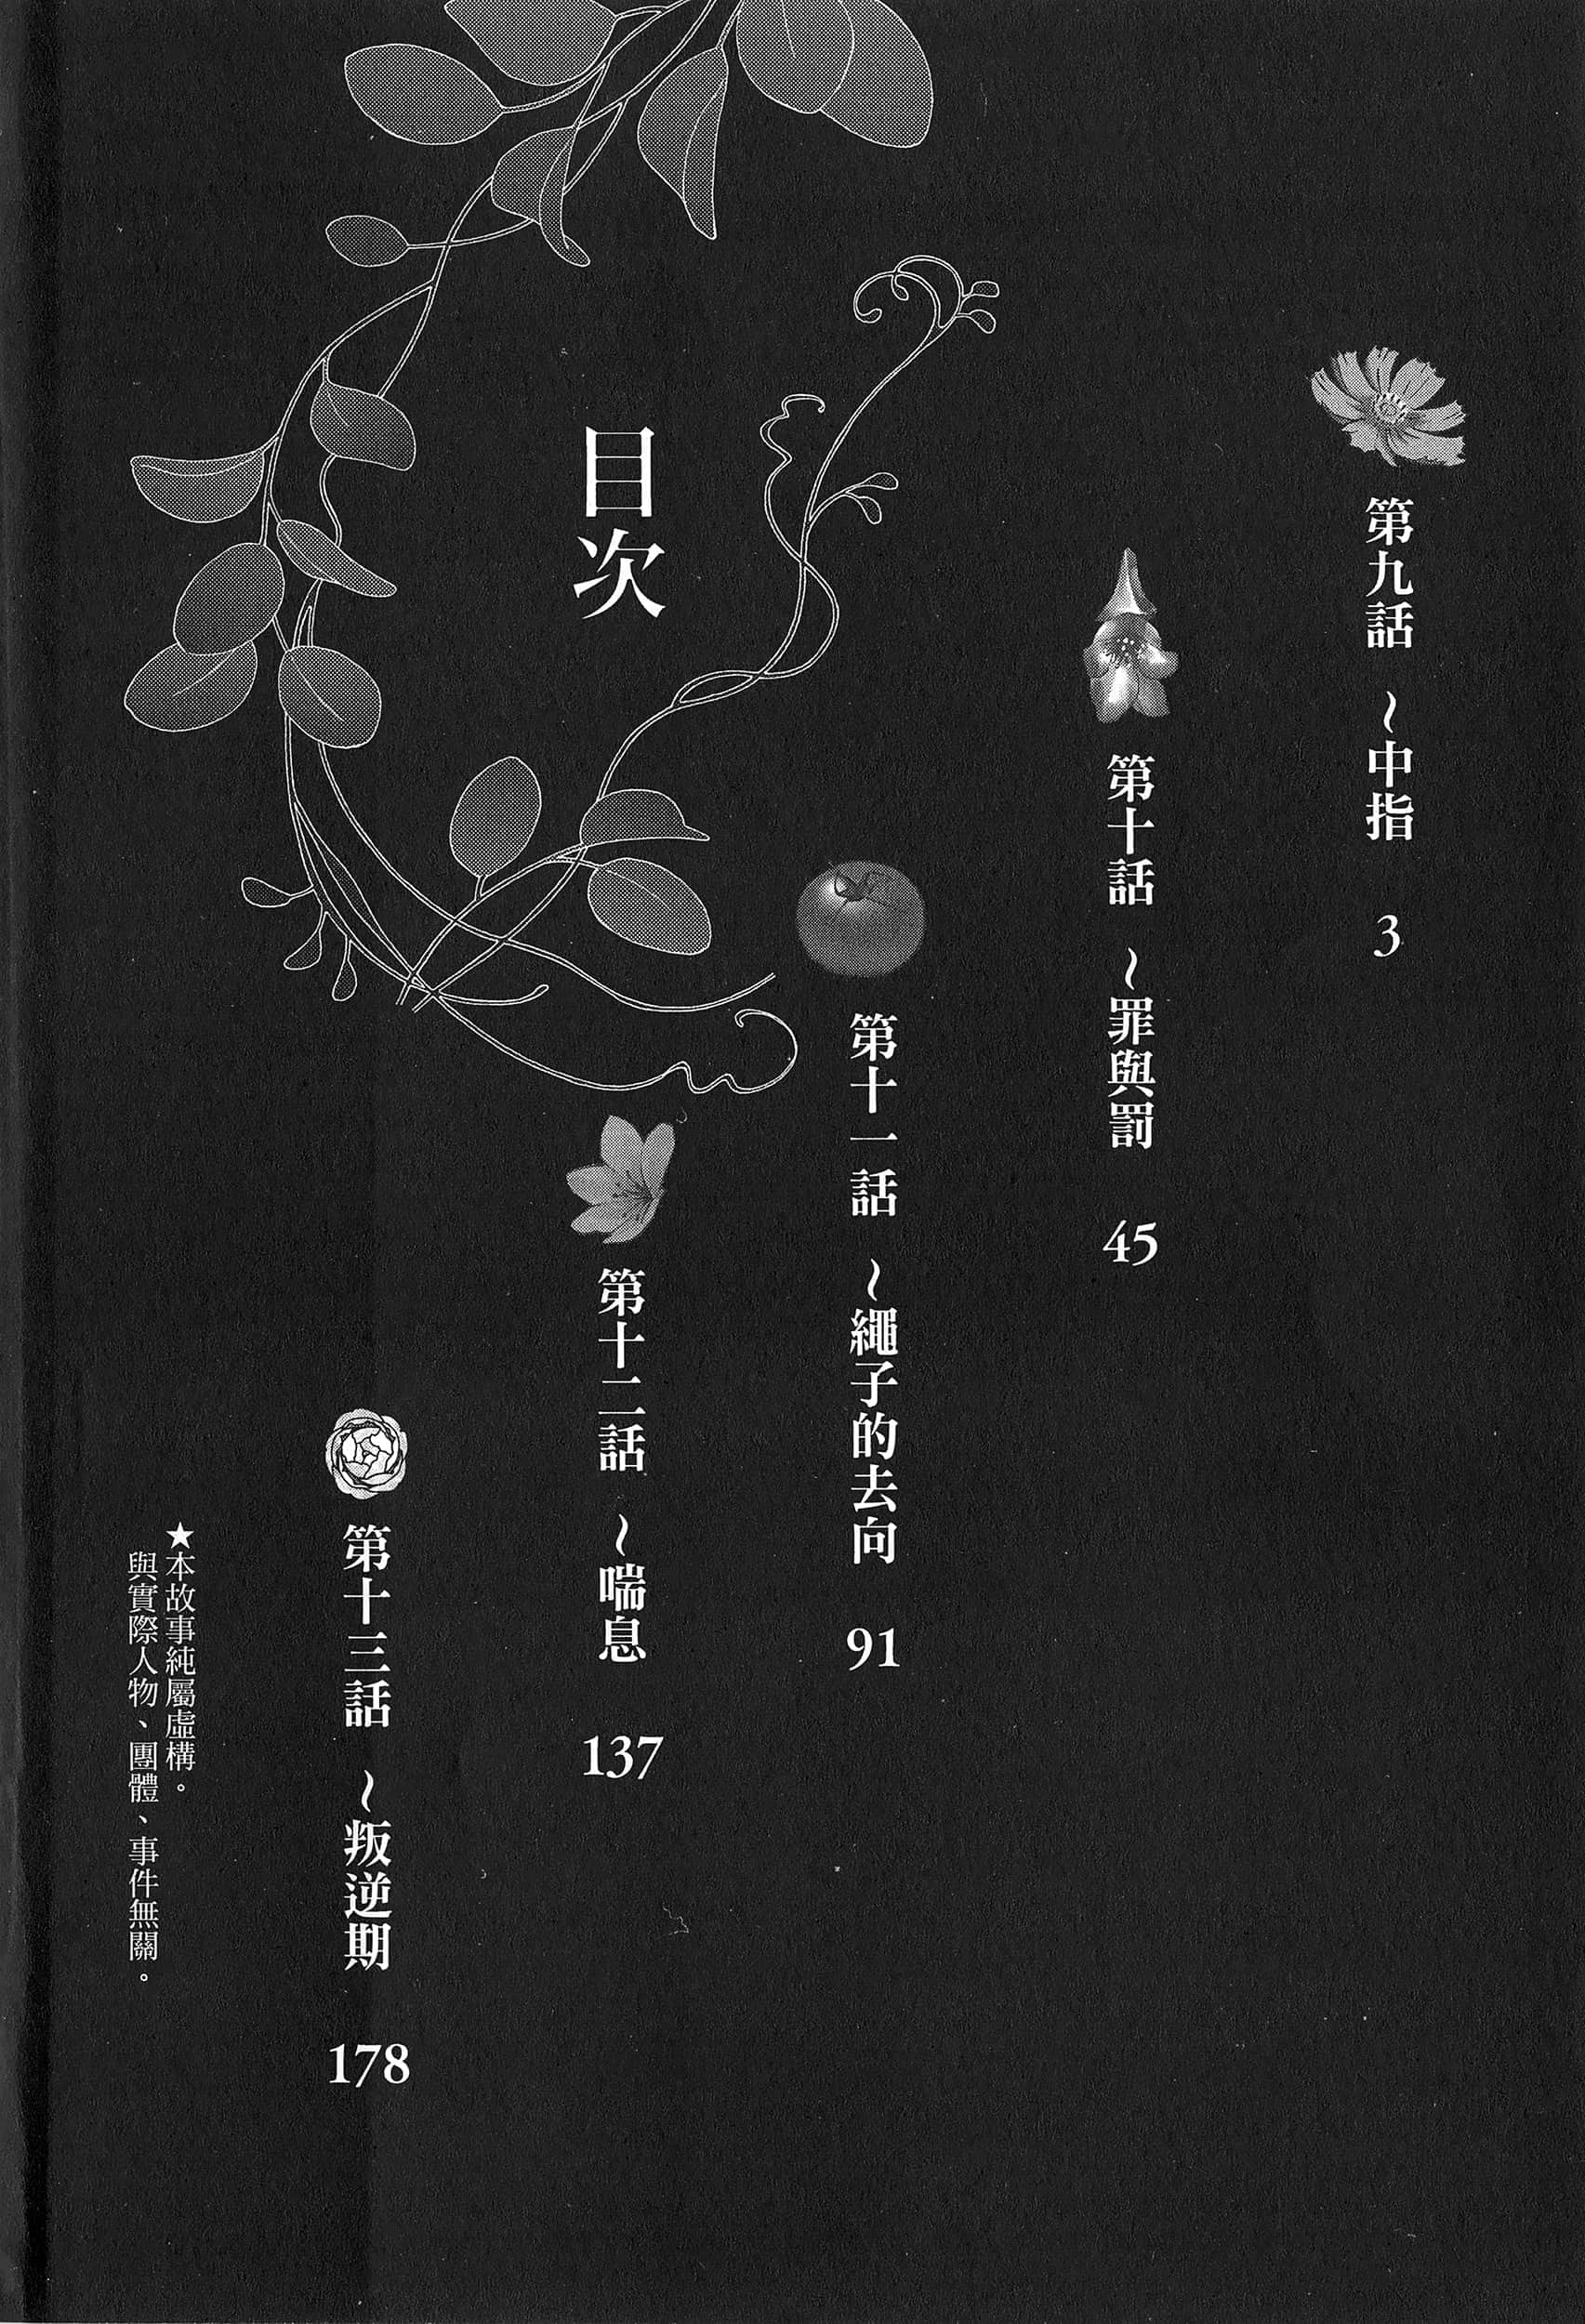 目次
第九話 ~中指 3
第十話 ~罪與罰 45
第十一話 ~繩子的去向 91
第十二話 ~喘息 137
第十三話 ~叛逆期 178
★本故事純屬虛構。
與實際人物、團體、事件無關。